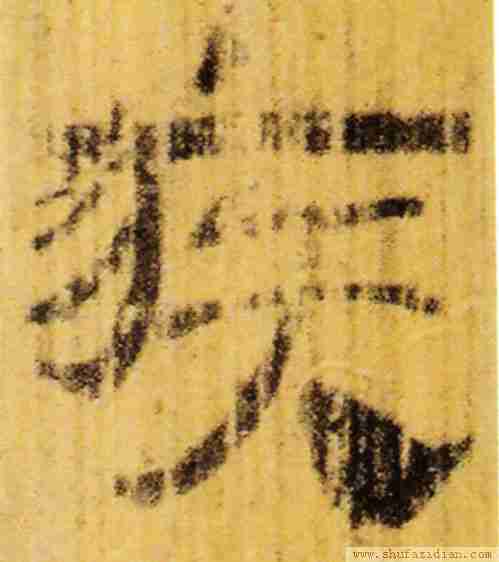 疾
www.shufazidian.com